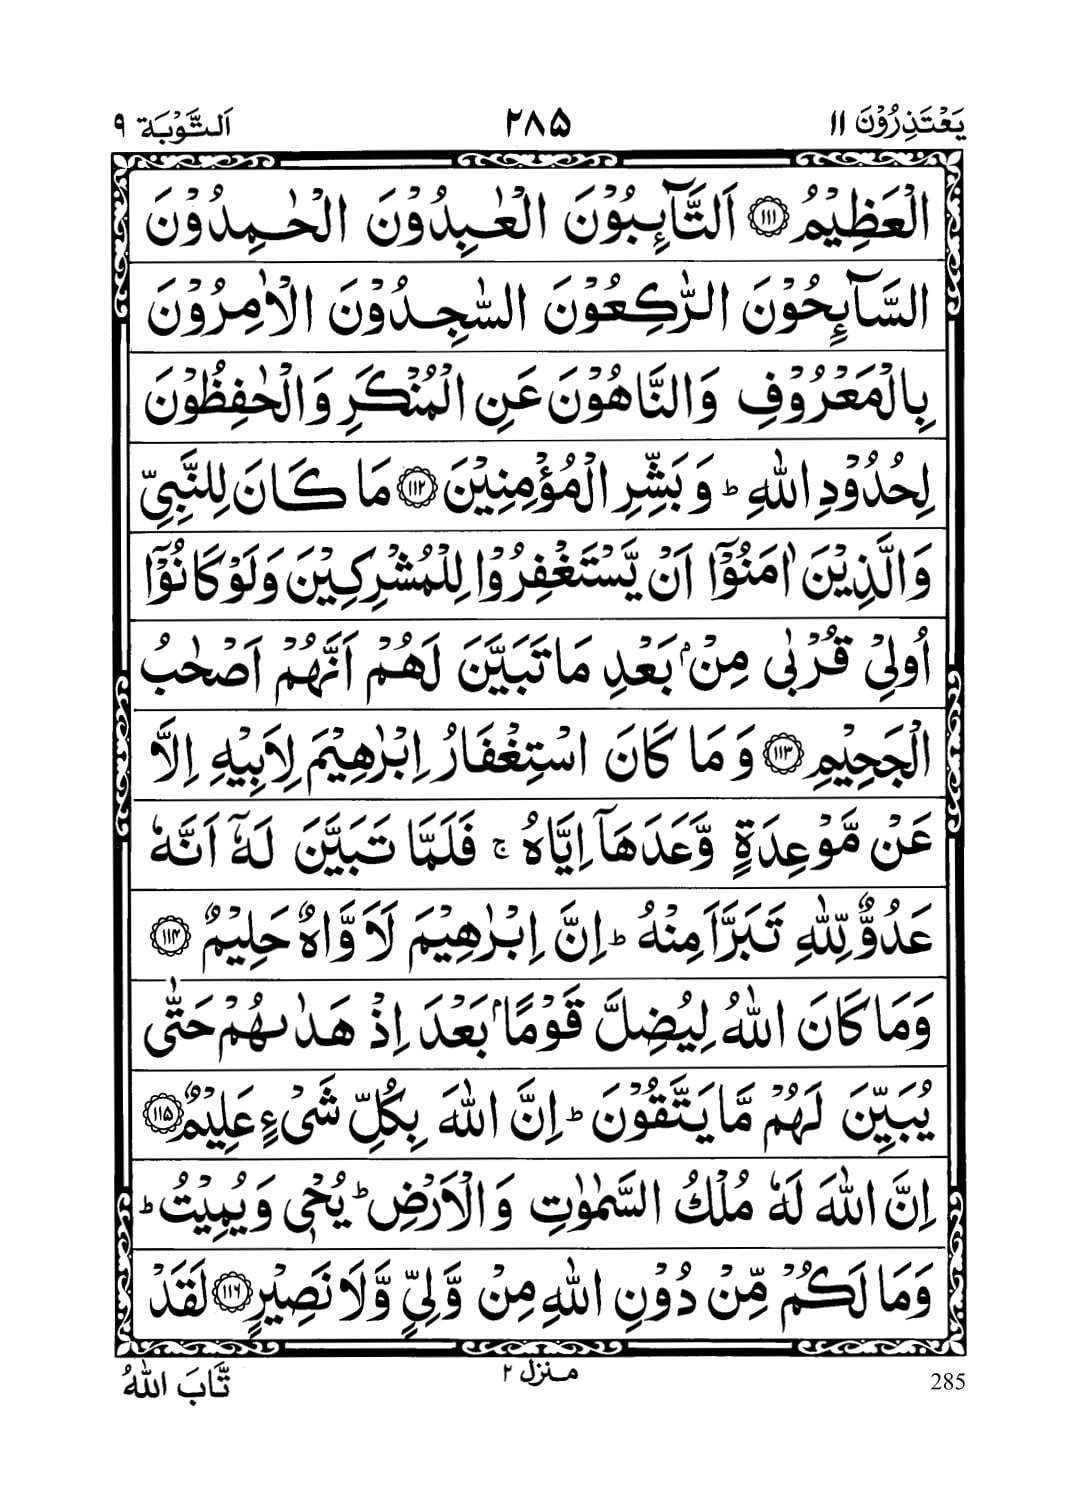 يَعْتَذِرُوْنَ ۱۱ ۲۸۵ اَلتَّوْبَة ۹
الْعَظِيْمُ ﴿۱۱۱﴾ اَلتَّآئِبُوْنَ الْعٰبِدُوْنَ الْحٰمِدُوْنَ
السَّآئِحُوْنَ الرّٰكِعُوْنَ السّٰجِدُوْنَ الْاٰمِرُوْنَ
بِالْمَعْرُوْفِ وَالنَّاهُوْنَ عَنِ الْمُنْكَرِ وَالْحٰفِظُوْنَ
لِحُدُوْدِ اللّٰهِ ؕ وَبَشِّرِ الْمُؤْمِنِيْنَ ﴿۱۱۲﴾ مَا كَانَ لِلنَّبِيِّ
وَالَّذِيْنَ اٰمَنُوْۤا اَنْ يَّسْتَغْفِرُوْا لِلْمُشْرِكِيْنَ وَلَوْ كَانُوْۤا
اُولِيْ قُرْبٰى مِنْۢ بَعْدِ مَا تَبَيَّنَ لَهُمْ اَنَّهُمْ اَصْحٰبُ
الْجَحِيْمِ ﴿۱۱۳﴾ وَمَا كَانَ اسْتِغْفَارُ اِبْرٰهِيْمَ لِاَبِيْهِ اِلَّا
عَنْ مَّوْعِدَةٍ وَّعَدَهَاۤ اِيَّاهُ ۚ فَلَمَّا تَبَيَّنَ لَهٗۤ اَنَّهٗ
عَدُوٌّ لِّلّٰهِ تَبَرَّاَ مِنْهُ ؕ اِنَّ اِبْرٰهِيْمَ لَاَوَّاهٌ حَلِيْمٌ ﴿۱۱۴﴾
وَمَا كَانَ اللّٰهُ لِيُضِلَّ قَوْمًۢا بَعْدَ اِذْ هَدٰىهُمْ حَتّٰى
يُبَيِّنَ لَهُمْ مَّا يَتَّقُوْنَ ؕ اِنَّ اللّٰهَ بِكُلِّ شَيْءٍ عَلِيْمٌ ﴿۱۱۵﴾
اِنَّ اللّٰهَ لَهٗ مُلْكُ السَّمٰوٰتِ وَالْاَرْضِ ؕ يُحْيٖ وَيُمِيْتُ ؕ
وَمَا لَكُمْ مِّنْ دُوْنِ اللّٰهِ مِنْ وَّلِيٍّ وَّلَا نَصِيْرٍ ﴿۱۱۶﴾ لَقَدْ
285 منزل ۲ تَّابَ اللّٰهُ